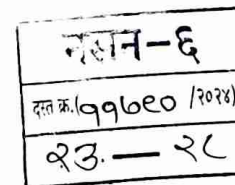 नसन-६
दस्त क्र.(११७९० /२०२४)
२३. — २८